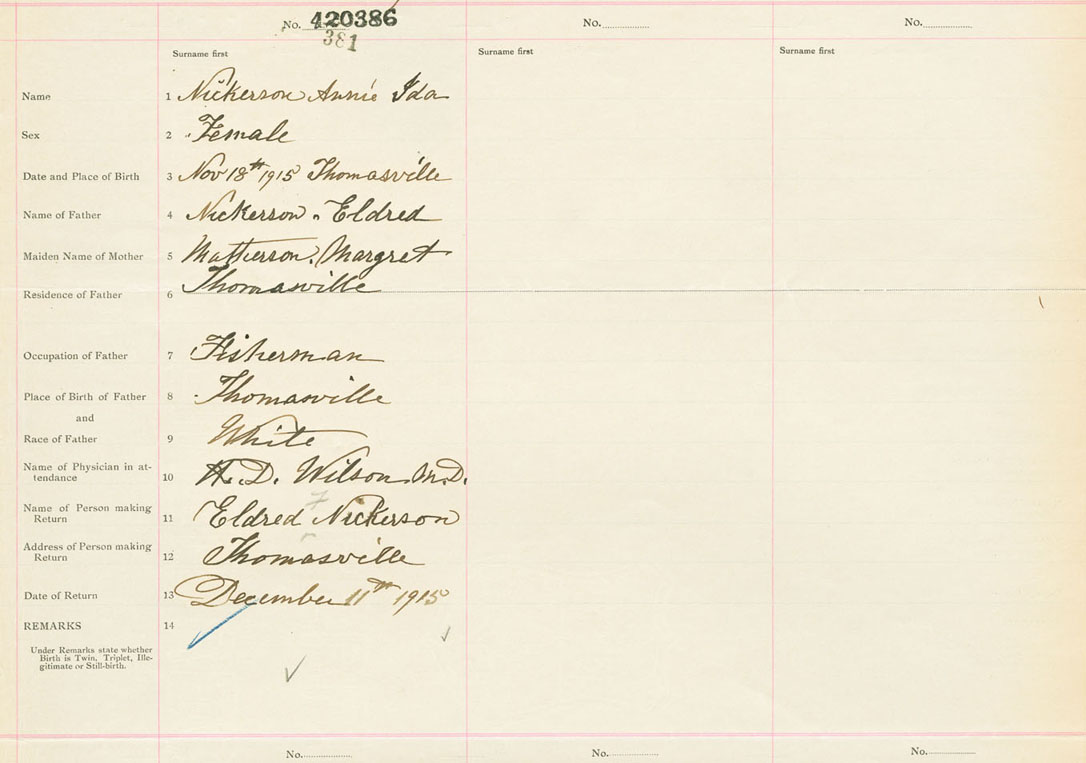 No. 420386 No. No.
381
Surname first Surname first Surname first
Name 1 Nickerson Annie Ida
Sex 2 Female
Date and Place of Birth 3 Nov 18th 1915 Thomasville
Name of Father 4 Nickerson Eldred
Maiden Name of Mother 5 Matherson, Margret
Residence of Father 6 Thomasville
Occupation of Father 7 Fisherman
Place of Birth of Father 8 Thomasville
and
Race of Father 9 White
Name of Physician in at-
tendance 10 H. D. Wilson M.D.
Name of Person making
Return 11 Eldred Nickerson
Address of Person making
Return 12 Thomasville
Date of Return 13 December 11th 1915
REMARKS 14
Under Remarks state whether
Birth is Twin, Triplet, Ille-
gitimate or Still-birth.
No. No. No.